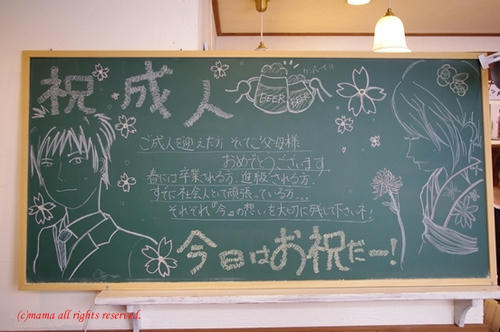 祝成人
BEER BEER
ご成人を迎えた方 そしてご父母様
おめでとうございます
春には卒業される方、進級される方
すでに社会人として頑張っている方…
それぞれ“今”の想いを大切に残して下さいネ!
今日はお祝だー!
(c)mama all rights reserved.